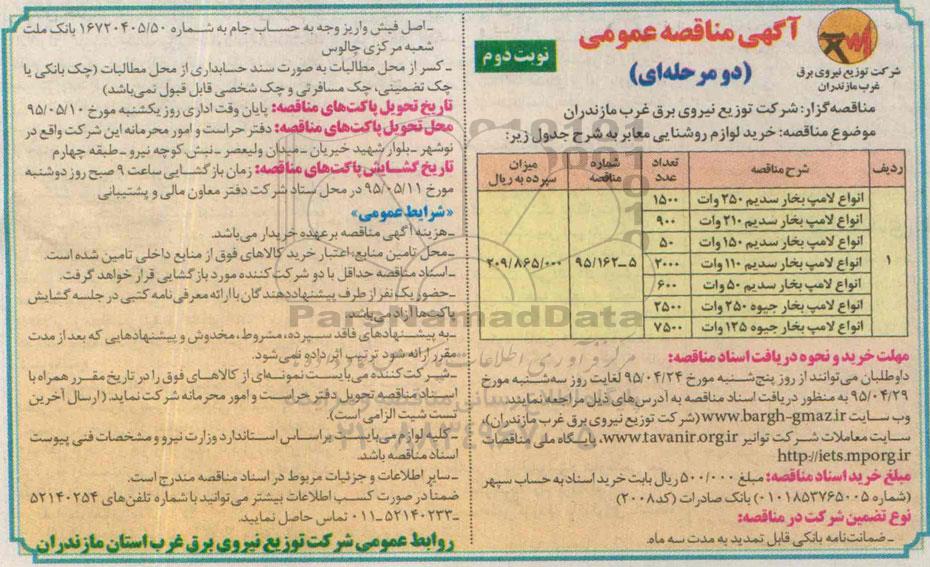 آگهی مناقصه عمومی
(دو مرحله‌ای)
نوبت دوم
شرکت توزیع نیروی برق
غرب مازندران
مناقصه‌گزار: شرکت توزیع نیروی برق غرب مازندران
موضوع مناقصه: خرید لوازم روشنایی معابر به شرح جدول زیر:
ردیف | شرح مناقصه | تعداد عدد | شماره مناقصه | میزان سپرده به ریال
۱ | انواع لامپ بخار سدیم ۲۵۰ وات | ۱۵۰۰ | ۹۵/۱۶۲ـ۵ | ۲۰۹/۸۶۵/۰۰۰
انواع لامپ بخار سدیم ۲۱۰ وات | ۹۰۰
انواع لامپ بخار سدیم ۱۵۰ وات | ۵۰
انواع لامپ بخار سدیم ۱۱۰ وات | ۲۰۰۰
انواع لامپ بخار سدیم ۵۰ وات | ۶۰۰
انواع لامپ بخار جیوه ۲۵۰ وات | ۲۵۰۰
انواع لامپ بخار جیوه ۱۲۵ وات | ۷۵۰۰
مهلت خرید و نحوه دریافت اسناد مناقصه:
داوطلبان می‌توانند از روز پنج‌شنبه مورخ ۹۵/۰۴/۲۴ لغایت روز سه‌شنبه مورخ
۹۵/۰۴/۲۹ به منظور دریافت اسناد مناقصه به آدرس‌های ذیل مراجعه نمایند:
وب سایت www.bargh-gmaz.ir (شرکت توزیع نیروی برق غرب مازندران)
سایت معاملات شرکت توانیر www.tavanir.org.ir، پایگاه ملی مناقصات
http://iets.mporg.ir
مبلغ خرید اسناد مناقصه: مبلغ ۵۰۰/۰۰۰ ریال بابت خرید اسناد به حساب سپهر
(شماره ۰۱۰۱۸۵۳۷۶۵۰۰۵) بانک صادرات (کد ۲۰۰۸)
نوع تضمین شرکت در مناقصه:
ـ ضمانت‌نامه بانکی قابل تمدید به مدت سه ماه.
ـ اصل فیش واریز وجه به حساب جام به شماره ۱۶۷۲۰۴۰۵/۵۰ بانک ملت
شعبه مرکزی چالوس
ـ کسر از محل مطالبات به صورت سند حسابداری از محل مطالبات (چک بانکی یا
چک تضمینی، چک مسافرتی و چک شخصی قابل قبول نمی‌باشد)
تاریخ تحویل پاکت‌های مناقصه: پایان وقت اداری روز یکشنبه مورخ ۹۵/۰۵/۱۰
محل تحویل پاکت‌های مناقصه: دفتر حراست و امور محرمانه این شرکت واقع در
نوشهر ـ بلوار شهید خیریان ـ میدان ولیعصر ـ نبش کوچه نیرو ـ طبقه چهارم
تاریخ گشایش پاکت‌های مناقصه: زمان بازگشایی ساعت ۹ صبح روز دوشنبه
مورخ ۹۵/۰۵/۱۱ در محل ستاد شرکت دفتر معاون مالی و پشتیبانی
«شرایط عمومی»
ـ هزینه آگهی مناقصه بر عهده خریدار می‌باشد.
ـ محل تامین منابع، اعتبار خرید کالاهای فوق از منابع داخلی تامین شده است.
ـ اسناد مناقصه حداقل با دو شرکت کننده مورد بازگشایی قرار خواهد گرفت.
ـ حضور یک نفر از طرف پیشنهاددهندگان با ارائه معرفی‌نامه کتبی در جلسه گشایش
پاکت‌ها آزاد می‌باشد.
ـ به پیشنهادهای فاقد سپرده، مشروط، مخدوش و پیشنهادهایی که بعد از مدت
مقرر ارائه شود ترتیب اثر داده نمی‌شود.
ـ شرکت کننده می‌بایست نمونه‌ای از کالاهای فوق را در تاریخ مقرر همراه با
اسناد مناقصه تحویل دفتر حراست و امور محرمانه شرکت نماید. (ارسال آخرین
تست شیت الزامی است)
ـ کلیه لوازم می‌بایست براساس استاندارد وزارت نیرو و مشخصات فنی پیوست
اسناد مناقصه باشد.
ـ سایر اطلاعات و جزئیات مربوط در اسناد مناقصه مندرج است.
ضمنا در صورت کسب اطلاعات بیشتر می‌توانید با شماره تلفن‌های ۵۲۱۴۰۲۵۴
ـ ۵۲۱۴۰۲۳۳ـ۰۱۱ تماس حاصل نمایید.
روابط عمومی شرکت توزیع نیروی برق غرب استان مازندران